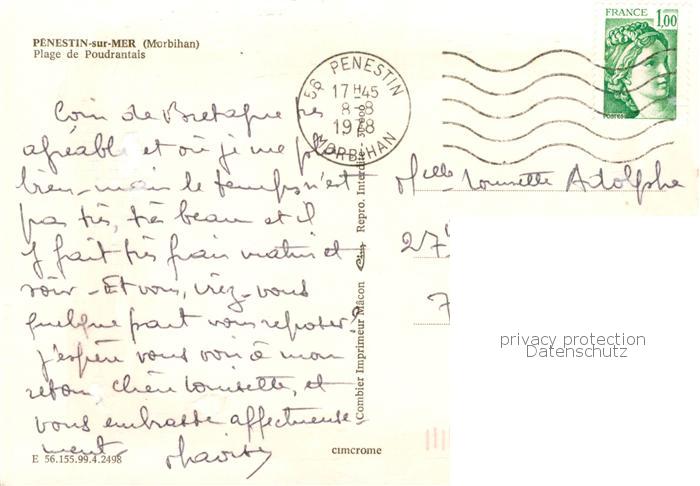 PÉNESTIN-sur-MER (Morbihan)
Plage de Poudrantais
FRANCE 1,00
Postes
56 PENESTIN
17 H45
8-8
1978
MORBIHAN
Coin de Bretagne très
agréable et où je me plais
bien - mais le temps n'est
pas très, très beau et il
y fait très frais matin et
soir - Et vous, irez-vous
quelque part vous reposer?
j'espère vous voir à mon
retour, chère Louisette, et
vous embrasse affectueuse-
ment
Melle Louisette Adolphe
27
7
Combier Imprimeur Mâcon Cim Repro. Interdite -
privacy protection
Datenschutz
E 56.155.99.4.2498
CIMCROME